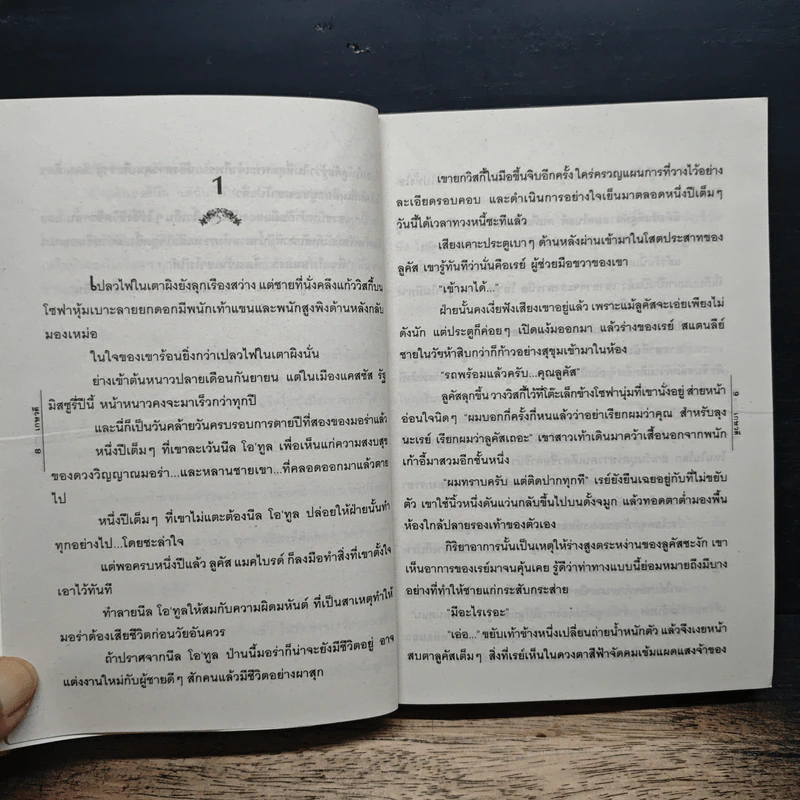 1
เปลวไฟในเตาผิงยังลุกเรืองสว่าง แต่ชายที่นั่งคลึงแก้ววิสกี้บน
โซฟาหุ้มเบาะลายยกดอกมีพนักเท้าแขนและพนักสูงพิงด้านหลังกลับ
มองเหม่อ
ในใจของเขาร้อนยิ่งกว่าเปลวไฟในเตาผิงนั่น
ย่างเข้าต้นหนาวปลายเดือนกันยายน แต่ในเมืองแคสซัส รัฐ
มิสซูรี่ปีนี้ หน้าหนาวคงจะมาเร็วกว่าทุกปี
และนี่ก็เป็นวันคล้ายวันครบรอบการตายปีที่สองของมอร่าแล้ว
หนึ่งปีเต็มๆ ที่เขาละเว้นนีล โอ'ทูล เพื่อเห็นแก่ความสงบสุข
ของดวงวิญญาณมอร่า...และหลานชายเขา...ที่คลอดออกมาแล้วตาย
ไป
หนึ่งปีเต็มๆ ที่เขาไม่แตะต้องนีล โอ'ทูล ปล่อยให้ฝ่ายนั้นทำ
ทุกอย่างไป...โดยชะล่าใจ
แต่พอครบหนึ่งปีแล้ว ลูคัส แมคไบรด์ ก็ลงมือทำสิ่งที่เขาตั้งใจ
เอาไว้ทันที
ทำลายนีล โอ'ทูลให้สมกับความผิดมหันต์ ที่เป็นสาเหตุทำให้
มอร่าต้องเสียชีวิตก่อนวัยอันควร
ถ้าปราศจากนีล โอ'ทูล ป่านนี้มอร่าก็น่าจะยังมีชีวิตอยู่ อาจ
แต่งงานใหม่กับผู้ชายดีๆ สักคนแล้วมีชีวิตอย่างผาสุก
8 เกษวดี
เขายกวิสกี้ในมือขึ้นจิบอีกครั้ง ใคร่ครวญแผนการที่วางไว้อย่าง
ละเอียดรอบคอบ และดำเนินการอย่างใจเย็นมาตลอดหนึ่งปีเต็มๆ
วันนี้ได้เวลาทวงหนี้ซะทีแล้ว
เสียงเคาะประตูเบาๆ ด้านหลังผ่านเข้ามาในโสตประสาทของ
ลูคัส เขารู้ทันทีว่านั่นคือเรย์ ผู้ช่วยมือขวาของเขา
"เข้ามาได้..."
ฝ่ายนั้นคงเงี่ยฟังเสียงเขาอยู่แล้ว เพราะแม้ลูคัสจะเอ่ยเพียงไม่
ดังนัก แต่ประตูก็ค่อยๆ เปิดแง้มออกมา แล้วร่างของเรย์ สแตนลีย์
ชายในวัยห้าสิบกว่าก็ก้าวอย่างสุขุมเข้ามาในห้อง
"รถพร้อมแล้วครับ...คุณลูคัส"
ลูคัสลุกขึ้น วางวิสกี้ไว้ที่โต๊ะเล็กข้างโซฟานุ่มที่เขานั่งอยู่ ส่ายหน้า
อ่อนใจนิดๆ "ผมบอกกี่ครั้งกี่หนแล้วว่าอย่าเรียกผมว่าคุณ สำหรับลุง
นะเรย์ เรียกผมว่าลูคัสเถอะ" เขาสาวเท้าเดินมาคว้าเสื้อนอกจากพนัก
เก้าอี้มาสวมอีกชั้นหนึ่ง
"ผมทราบครับ แต่ติดปากทุกที" เรย์ยังยืนเฉยอยู่กับที่ไม่ขยับ
ตัว เขาใช้นิ้วหนึ่งดันแว่นกลับขึ้นไปบนดั้งจมูก แล้วทอดตาต่ำมองพื้น
ห้องใกล้ปลายรองเท้าของตัวเอง
กิริยาอาการนั้นเป็นเหตุให้ร่างสูงตระหง่านของลูคัสชะงัก เขา
เห็นอาการของเรย์มาจนคุ้นเคย รู้ดีว่าท่าทางแบบนี้ย่อมหมายถึงมีบาง
อย่างที่ทำให้ชายแก่กระสับกระส่าย
"มีอะไรเรอะ"
"เอ่อ..." ขยับเท้าข้างหนึ่งเปลี่ยนถ่ายน้ำหนักตัว แล้วจึงเงยหน้า
สบตาลูคัสเต็มๆ สิ่งที่เรย์เห็นในดวงตาสีฟ้าจัดคมเข้มแผดแสงจ้าของ
9 เกษวดี